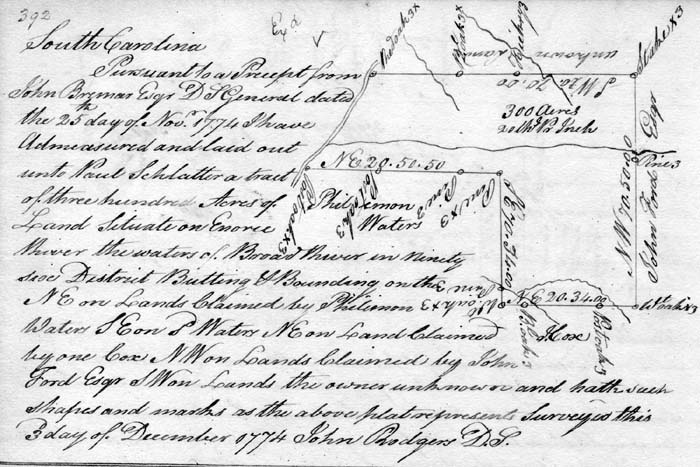 392
Ex d
South Carolina
Pursuant to a Precept from
John Bremar Esqr D S General dated
the 25th day of Novr. 1774 I have
Admeasured and laid out
unto Paul Schlatter a tract
of three hundred Acres of
Land Situate on Enoree
River the waters of Broad River in Ninety
six District Butting & Bounding on the
N E on Lands Claimed by Philemon
Waters S E on P Waters N E on Land Claimed
by one Cox N W on Lands Claimed by John
Ford Esqr S W on Lands the owner unknown and hath such
shapes and marks as the above plat represents Surveyed this
3 day of December 1774 John Rodgers D. S.
Redoak 3x
Black 3x
unknown Land
Stake x 3
S W 20. 70.00
300 Acres
20 Chs Pr Inch
Pine 3
John Ford Esqr
N W 70 50.00
N E 28. 50. 50
Postoak x 3
Postoak 3
Pine 3
Pine x 3
Philemon
Waters
S E 70. 34.00
Pine 3
N E 20. 34.00
W oak x 3
R oak 3
Postoak 3
J Cox